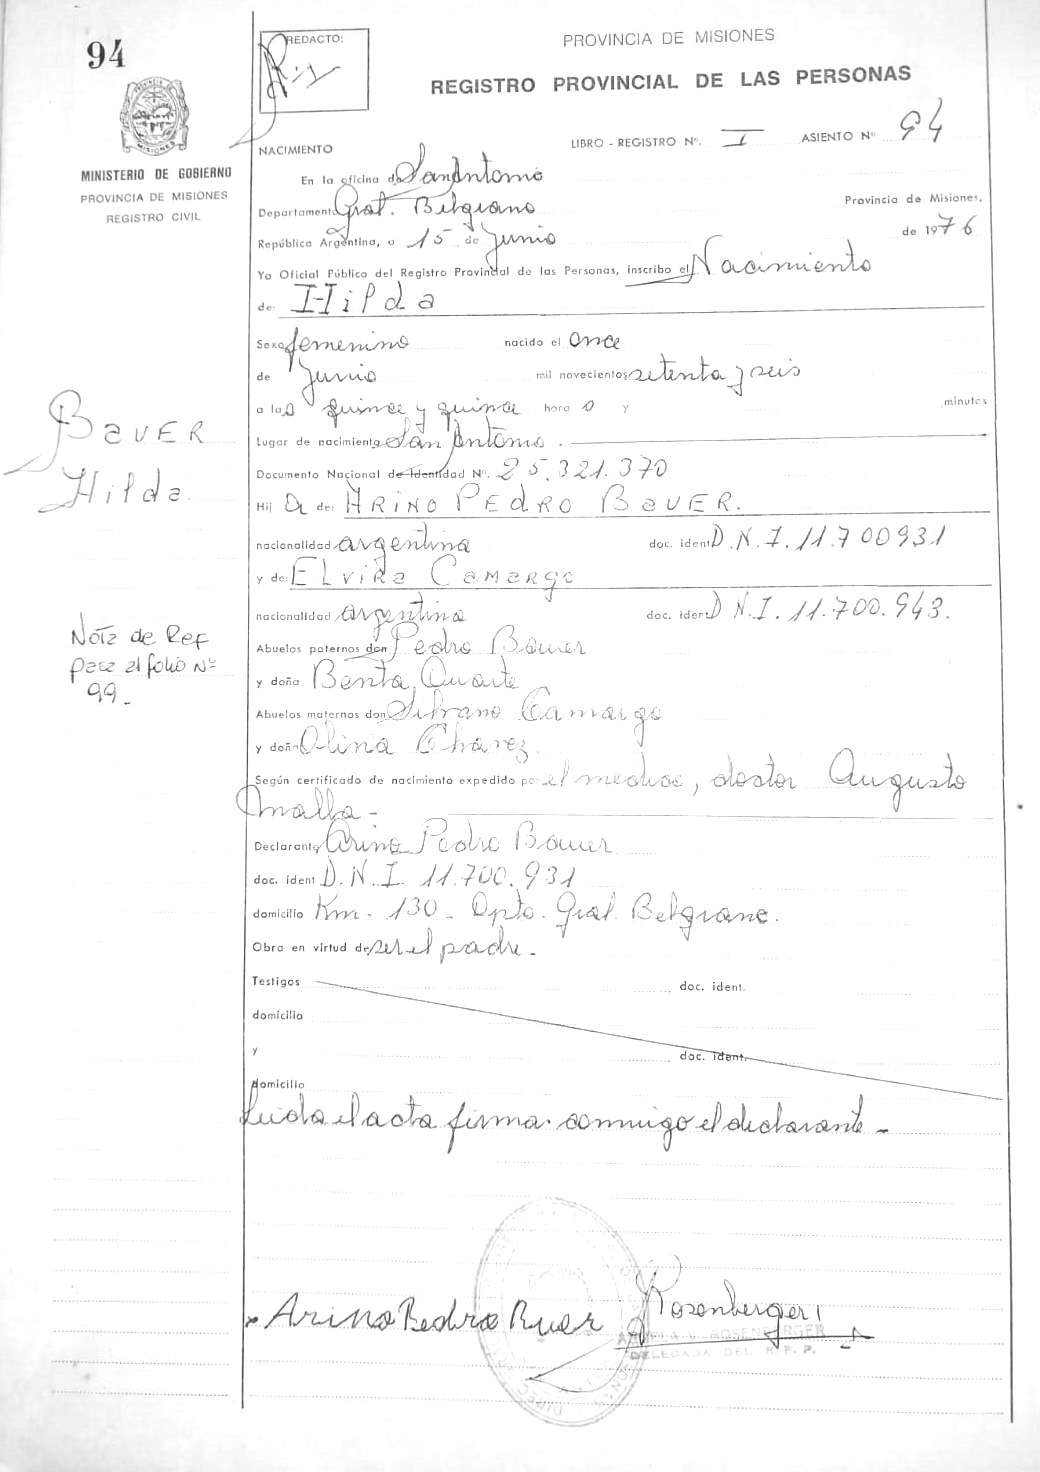 94
REDACTO:
PROVINCIA DE MISIONES
REGISTRO PROVINCIAL DE LAS PERSONAS
MISIONES
MINISTERIO DE GOBIERNO
PROVINCIA DE MISIONES
REGISTRO CIVIL
NACIMIENTO
LIBRO - REGISTRO Nº. I ASIENTO Nº 94
En la oficina de San Antonio
Departamento Gral. Belgrano Provincia de Misiones,
República Argentina, a 15 de Junio de 1976
Yo Oficial Público del Registro Provincial de las Personas, inscribo el Nacimiento
de: Hilda
Sexo femenino nacido el once
de Junio mil novecientos setenta y seis
a las quince y quince hora s y minutos
Lugar de nacimiento San Antonio.
Documento Nacional de Identidad Nº. 25.321.370
Hij a de: ARINO PEDRO BAUER.
nacionalidad argentina doc. ident D.N.I. 11.700931
y de: ELVIRA CAMARGO
nacionalidad argentina doc. ident D N.I. 11.700.943.
Abuelos paternos don Pedro Bauer
y doña Benta Duarte
Abuelos maternos don Silvano Camargo
y doña Olina Chavez
Según certificado de nacimiento expedido por el medico, doctor Augusto
Malla -
Declarante Arino Pedro Bauer
doc. ident D.N.I. 11.700.931
domicilio Km. 130 - Dpto. Gral. Belgrano.
Obra en virtud de ser el padre.
Testigos doc. ident.
domicilio
y doc. ident.
domicilio
Leida el acta firma conmigo el declarante -
BAUER
Hilda
Nota de Ref
pasa al folio Nº
99.
Arino Pedro Buer
Rosenberger
ROSENBERGER
DELEGADA DEL R.P.P.